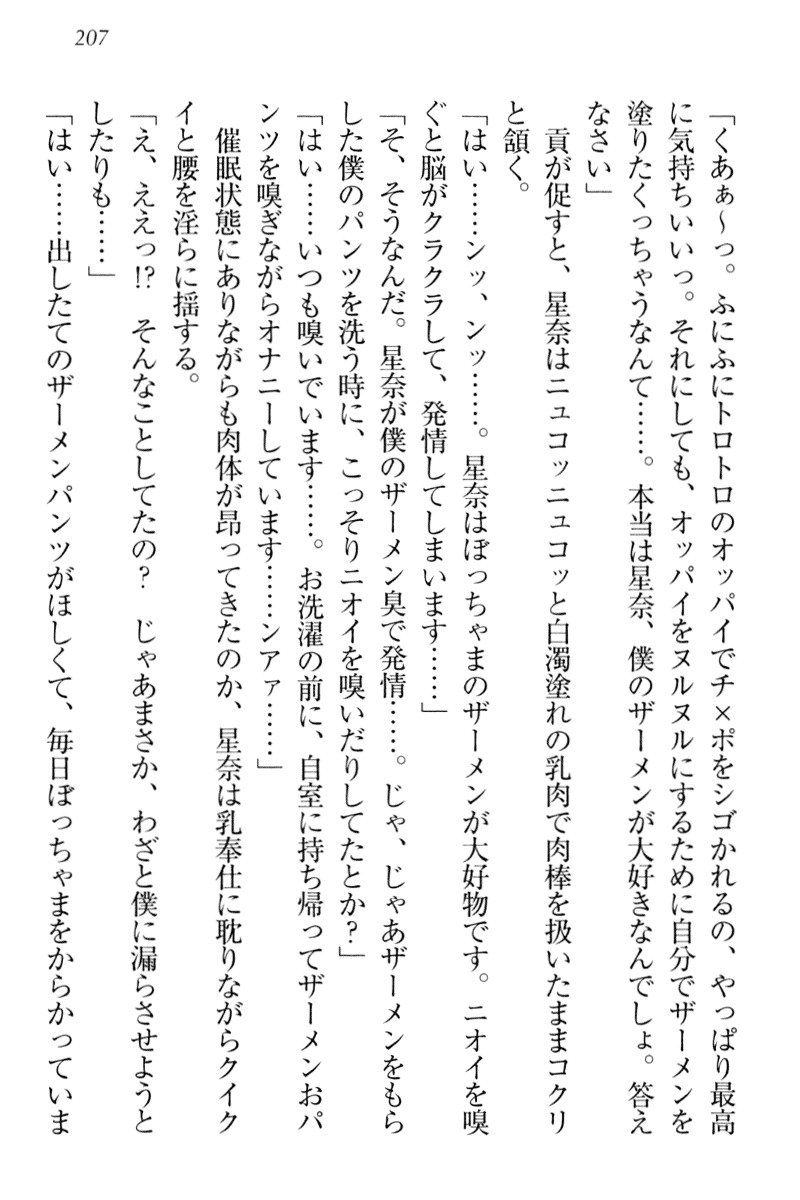 207
「くあぁ～っ。ふにふにトロトロのオッパイでチ×ポをシゴかれるの、やっぱり最高
に気持ちいいっ。それにしても、オッパイをヌルヌルにするために自分でザーメンを
塗りたくっちゃうなんて……。本当は星奈、僕のザーメンが大好きなんでしょ。答え
なさい」
　貢が促すと、星奈はニュコッニュコッと白濁塗れの乳肉で肉棒を扱いたままコクリ
と頷く。
「はい……ンッ、ンッ……。星奈はぼっちゃまのザーメンが大好物です。ニオイを嗅
ぐと脳がクラクラして、発情してしまいます……」
「そ、そうなんだ。星奈が僕のザーメン臭で発情……。じゃ、じゃあザーメンをもら
した僕のパンツを洗う時に、こっそりニオイを嗅いだりしてたとか？」
「はい……いつも嗅いでいます……。お洗濯の前に、自室に持ち帰ってザーメンおパ
ンツを嗅ぎながらオナニーしています……ンアァ……」
　催眠状態にありながらも肉体が昂ってきたのか、星奈は乳奉仕に耽りながらクイク
イと腰を淫らに揺する。
「え、ええっ!?　そんなことしてたの？　じゃあまさか、わざと僕に漏らさせようと
したりも……」
「はい……出したてのザーメンパンツがほしくて、毎日ぼっちゃまをからかっていま